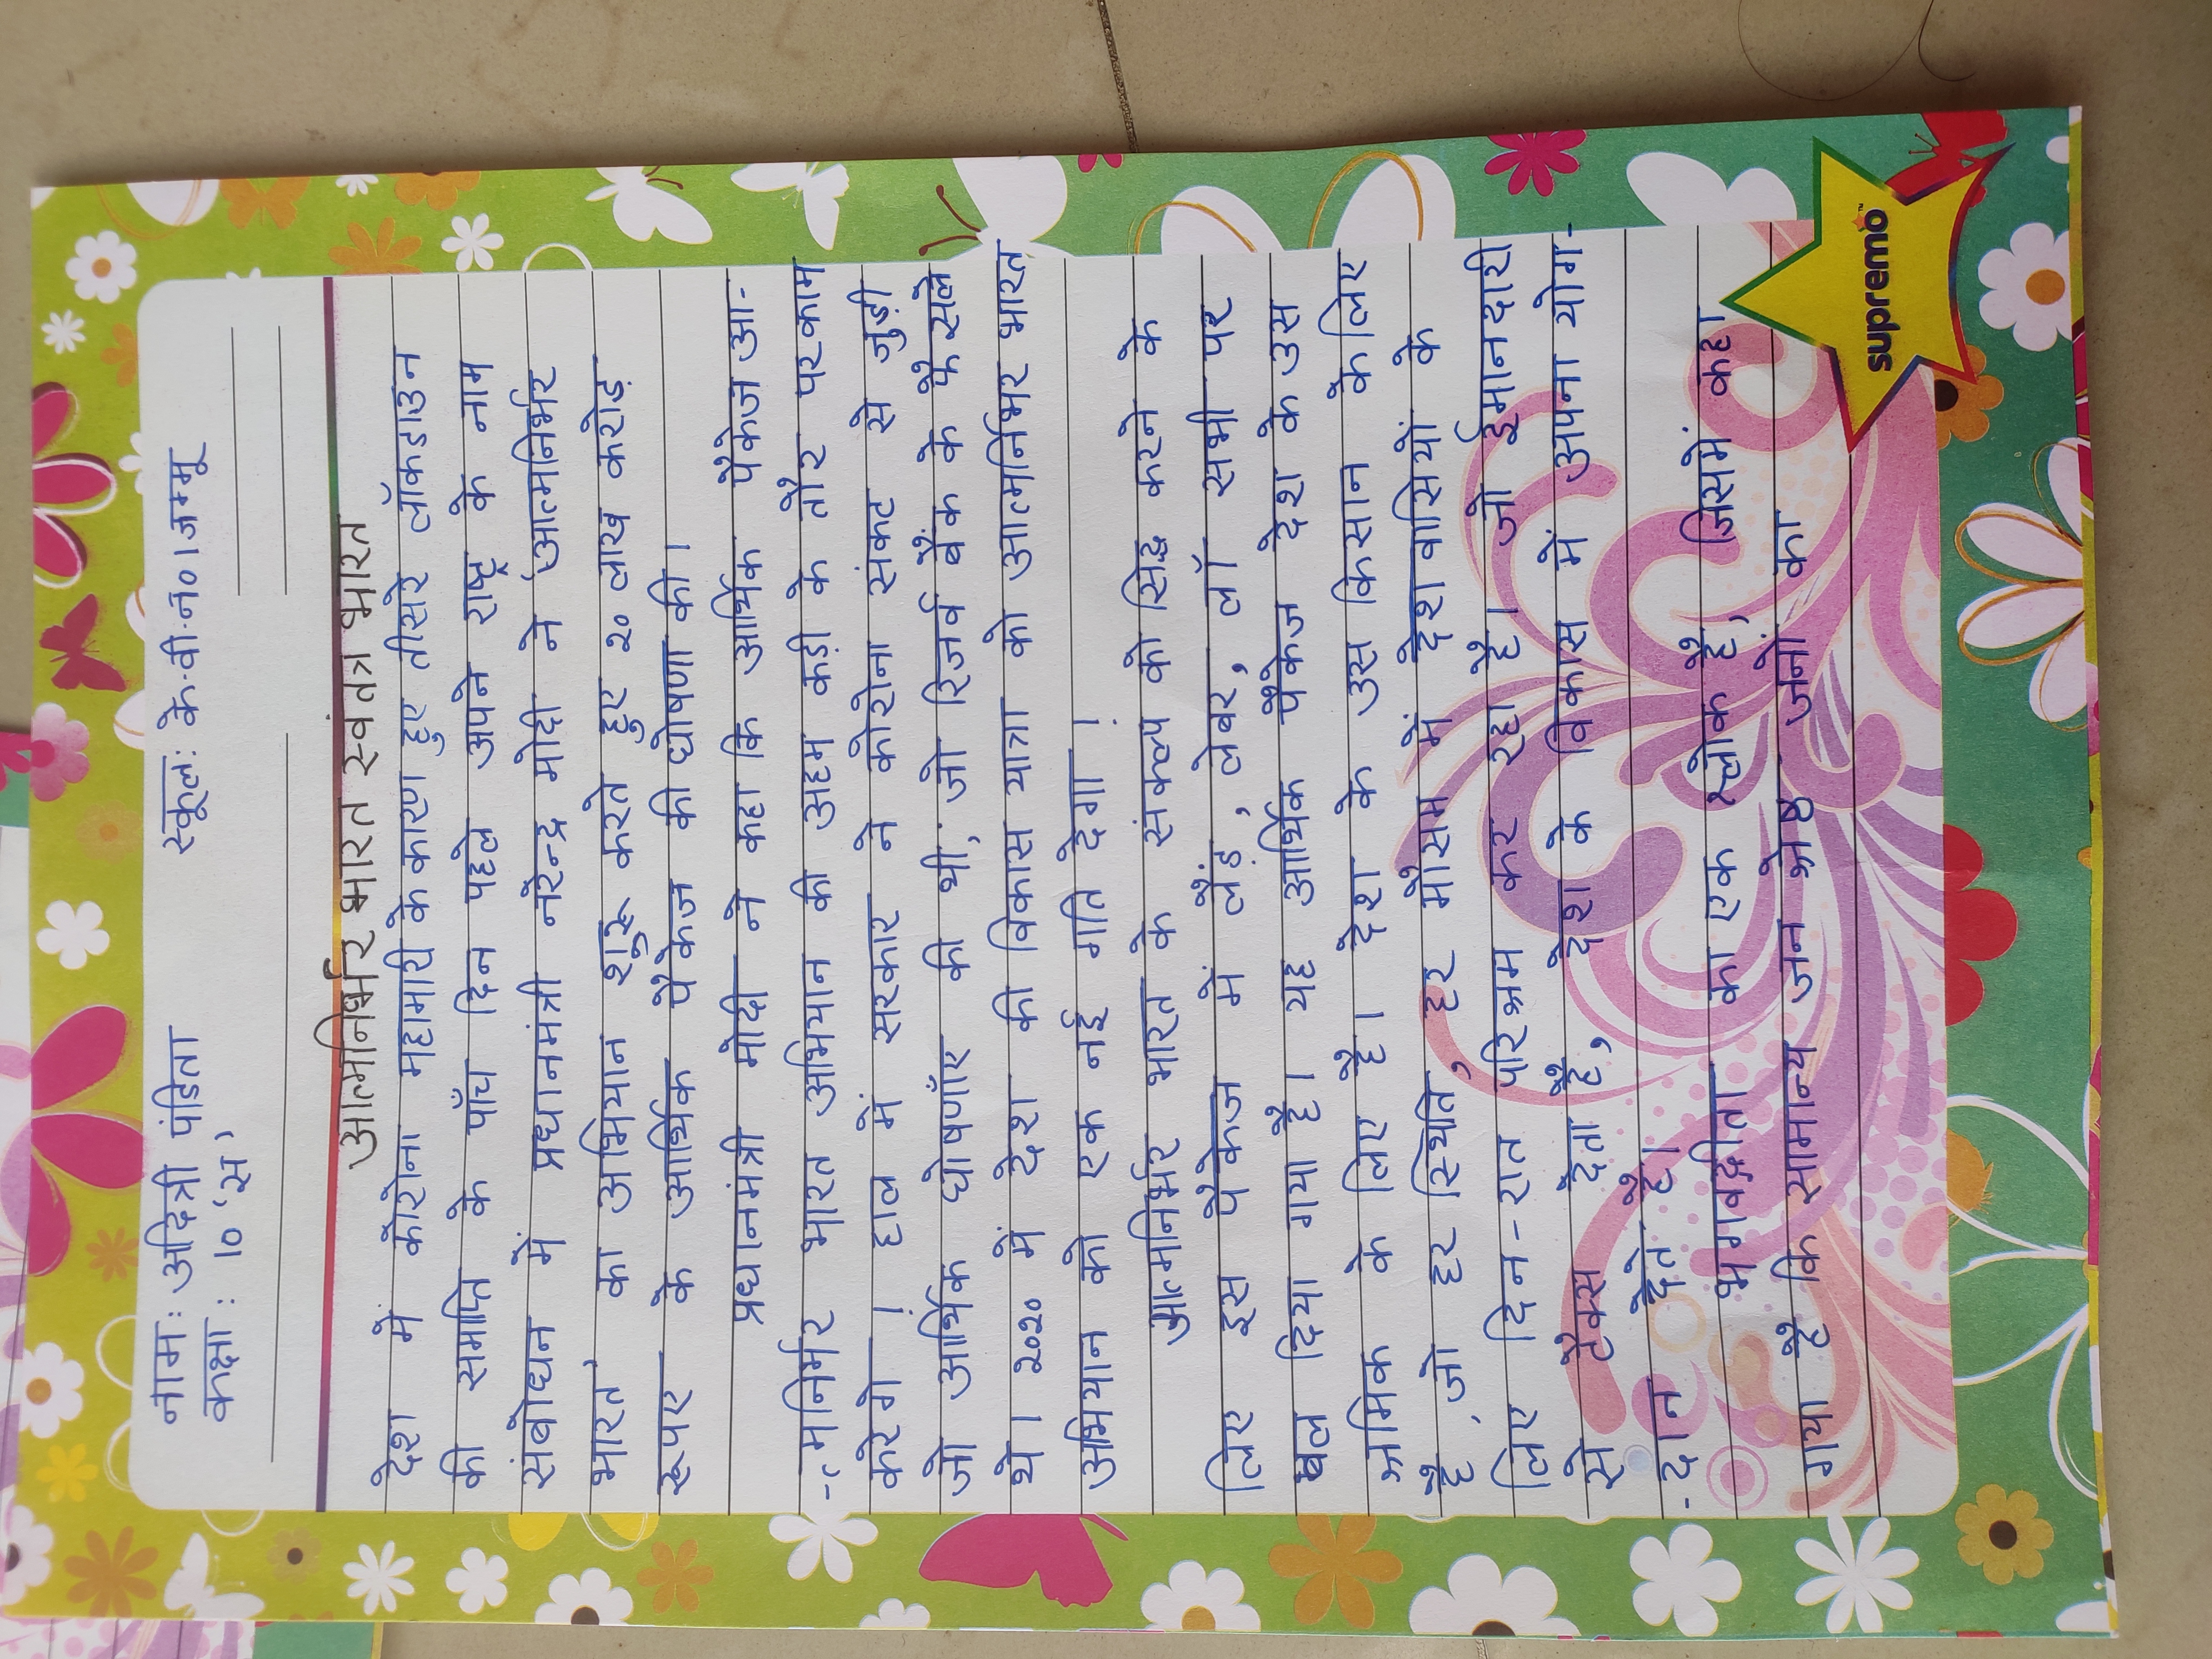 नाम: अदित्री पंडिता
स्कूल: के.वी.नं० 1 जम्मू
कक्षा : 10 'स'
आत्मनिर्भर भारत स्वतंत्र भारत
देश में कोरोना महामारी के कारण हुए तीसरे लॉकडाउन
की समाप्ति के पाँच दिन पहले अपने राष्ट्र के नाम
संबोधन में प्रधानमंत्री नरेन्द्र मोदी ने 'आत्मनिर्भर
भारत' का अभियान शुरू करते हुए २० लाख करोड़
रूपए के आर्थिक पैकेज की घोषणा की।
प्रधानमंत्री मोदी ने कहा कि आर्थिक पैकेज आ-
-त्मनिर्भर भारत अभियान की अहम कड़ी के तौर पर काम
करेगे । हाल में सरकार ने कोरोना संकट से जुड़ी
जो आर्थिक घोषणाँए की थी, जो रिजर्व बैंक के फैसले
थे। २०२० में देश की विकास यात्रा को आत्मनिर्भर भारत
अभियान को एक नई गति देगा ।
आत्मनिर्भर भारत के संकल्प को सिद्ध करने के
लिए इस पैकेज में लैंड, लेबर, लॉ सभी पर
बल दिया गया है। यह आर्थिक पैकेज देश के उस
श्रमिक के लिए है। देश के उस किसान के लिए
है, जो हर स्थिति, हर मौसम में देशवासियों के
लिए दिन-रात परिश्रम कर रहा है। जो ईमानदारी
से टैक्स देता है, देश के विकास में अपना योग-
-दान देते है।
भगवद्गीता का एक श्लोक है, जिसमें कहा
गया है कि सामान्य जन श्रेष्ठ जनों का
supremo™